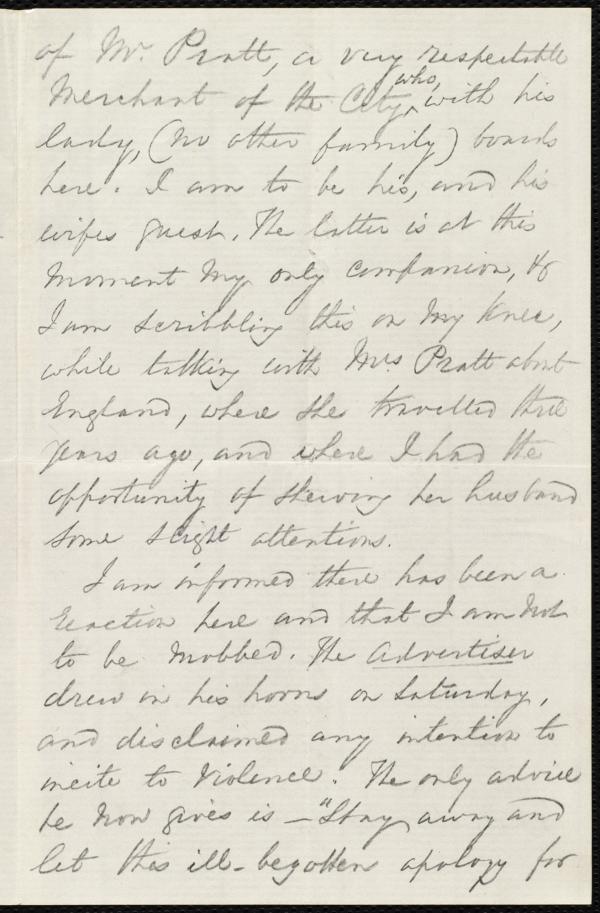 of Mr. Pratt, a very respectable
Merchant of the City, who, with his
lady, (no other family) boards
here. I am to be his, and his
wifes guest. The latter is at this
moment my only companion, &
I am scribbling this on my knee,
while talking with Mrs Pratt about
England, where she travelled three
years ago, and where I had the
opportunity of shewing her husband
some slight attentions.
I am informed there has been a
reaction here and that I am not
to be mobbed. The Advertiser
drew in his horns on Saturday,
and disclaimed any intention to
incite to violence. The only advice
he now gives is – "Stay away and
let this ill-begotten apology for